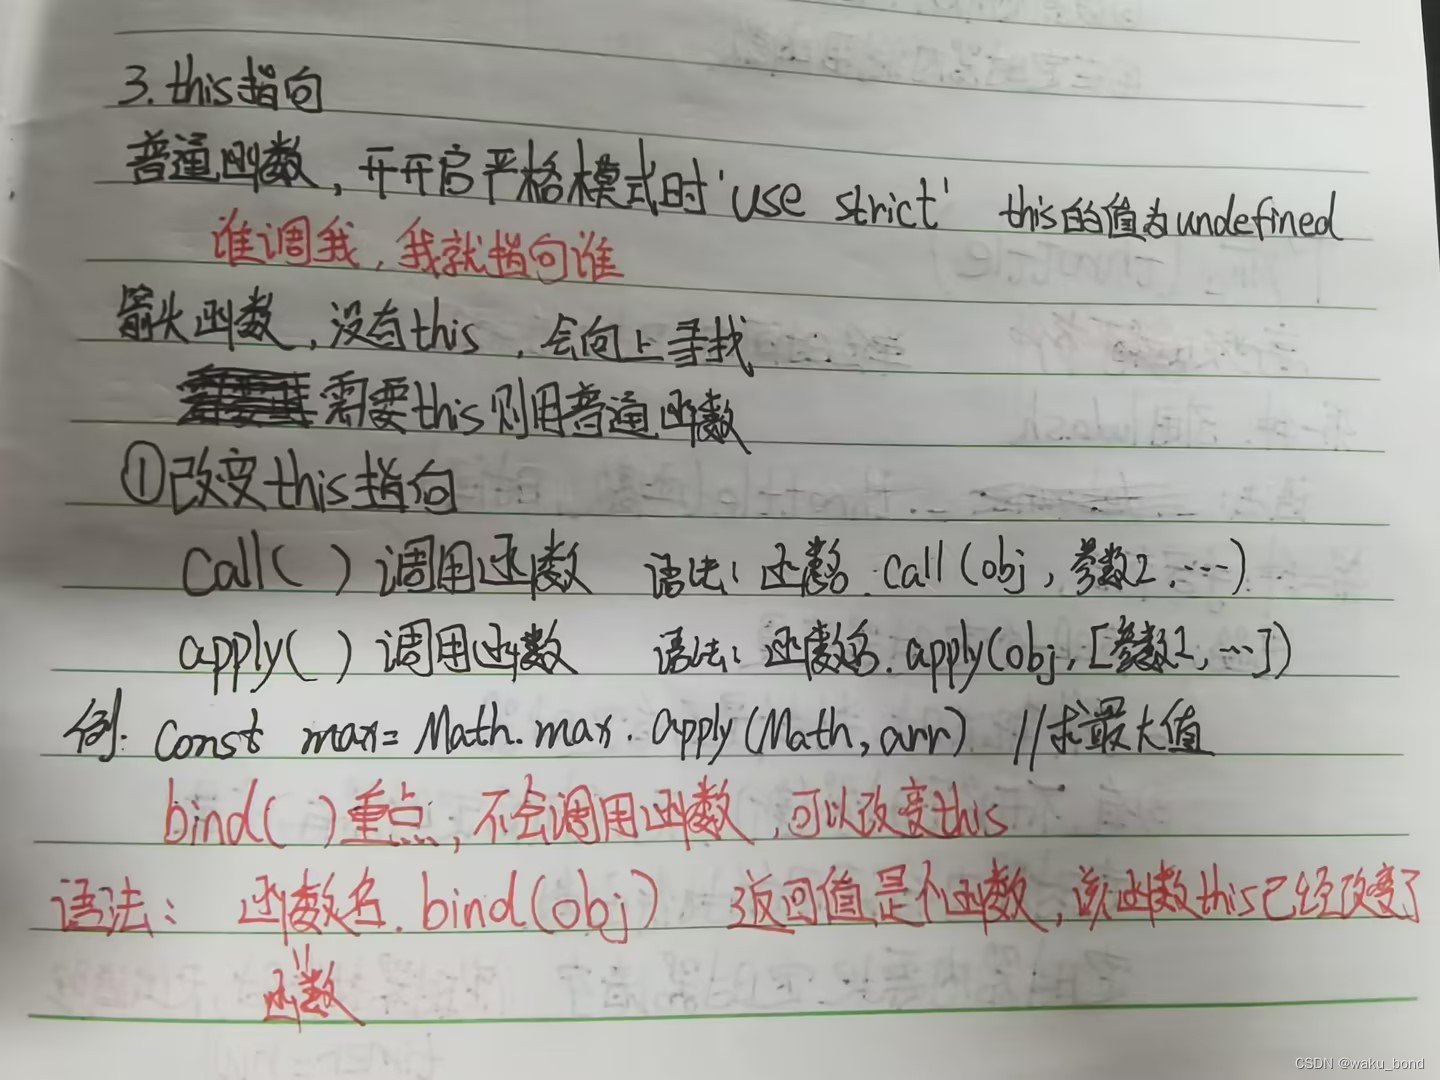 3. this指向
普通函数，开开启严格模式时'use strict' this的值为undefined
谁调我，我就指向谁
箭头函数，没有this，会向上寻找
需要this则用普通函数
①改变this指向
call( ) 调用函数 语法：函数名.call(obj,参数2,……)
apply( ) 调用函数 语法：函数名.apply(obj,[参数2,…])
例：const max=Math.max.apply(Math,arr) //求最大值
bind( )重点，不会调用函数，可以改变this
语法：函数名.bind(obj) 返回值是个函数，该函数this已经改变了
函数
CSDN @waku_bond